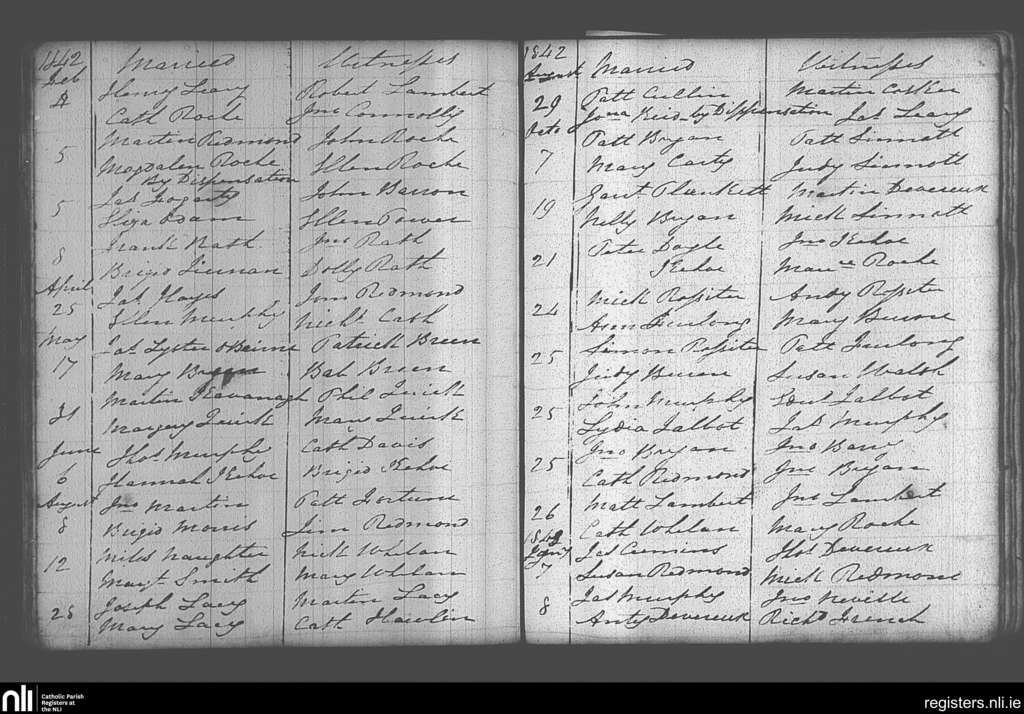 1842 Married Witnesses
Feb
Henry Leary Robert Lambert
Cath Roche Jno Connolly
Martin Redmond John Roche
5 Magdalen Roche Ellen Roche
By Dispensation
Jas Fogarty John Barron
5 Eliza Adam Ellen Power
Frank Rath Jno Rath
8 Brigid Dolly Rath
April
Jas Hayes Jom Redmond
25 Ellen Murphy Nichs Cash
May
Jas Lyster OBeirne Patrick Breen
17 Mary Breen Bab Breen
Martin Kavanagh Phil Quirk
31 Margery Quirk Mary Quirk
June Thos Murphy Cath Davis
6 Hannah Kehoe Brigid Kehoe
August Jno Martin Patt Fortune
8 Brigid Morris Jim Redmond
12 Miles Naughter Nick Whelan
Margt Smith Mary Whelan
25 Joseph Lacy Martin Lacy
Mary Lacy Cath Hawlin
1842
August Married Witnesses
29 Patt Cullin Martin Cosker
Jona Reid by Dispensation Jas Leary
Octo Patt Bryan Patt Sinnott
7 Mary Carty Judy Sinnott
Plunkett Martin Devereux
19 Nelly Bryan Mick Sinnott
Peter Doyle Jno Kehoe
21 Kehoe Roche
Mick Rossiter Andy Rossiter
24 Ann Furlong Mary
Simon Rossiter Patt Furlong
25 Judy Susan Walsh
25 John Murphy Edwd Talbot
Lydia Talbot Jas Murphy
25 Jno Bryan Jno
Cath Redmond Jno Bryan
26 Matt Lambert Jno Lambert
Cath Whelan Mary Roche
Jas Cumins Thos Devereux
7 Susan Redmond Mick Redmond
Jas Murphy Jno Neville
8 Anty Devereux Richd French
nli Catholic Parish
Registers at
the NLI
registers.nli.ie